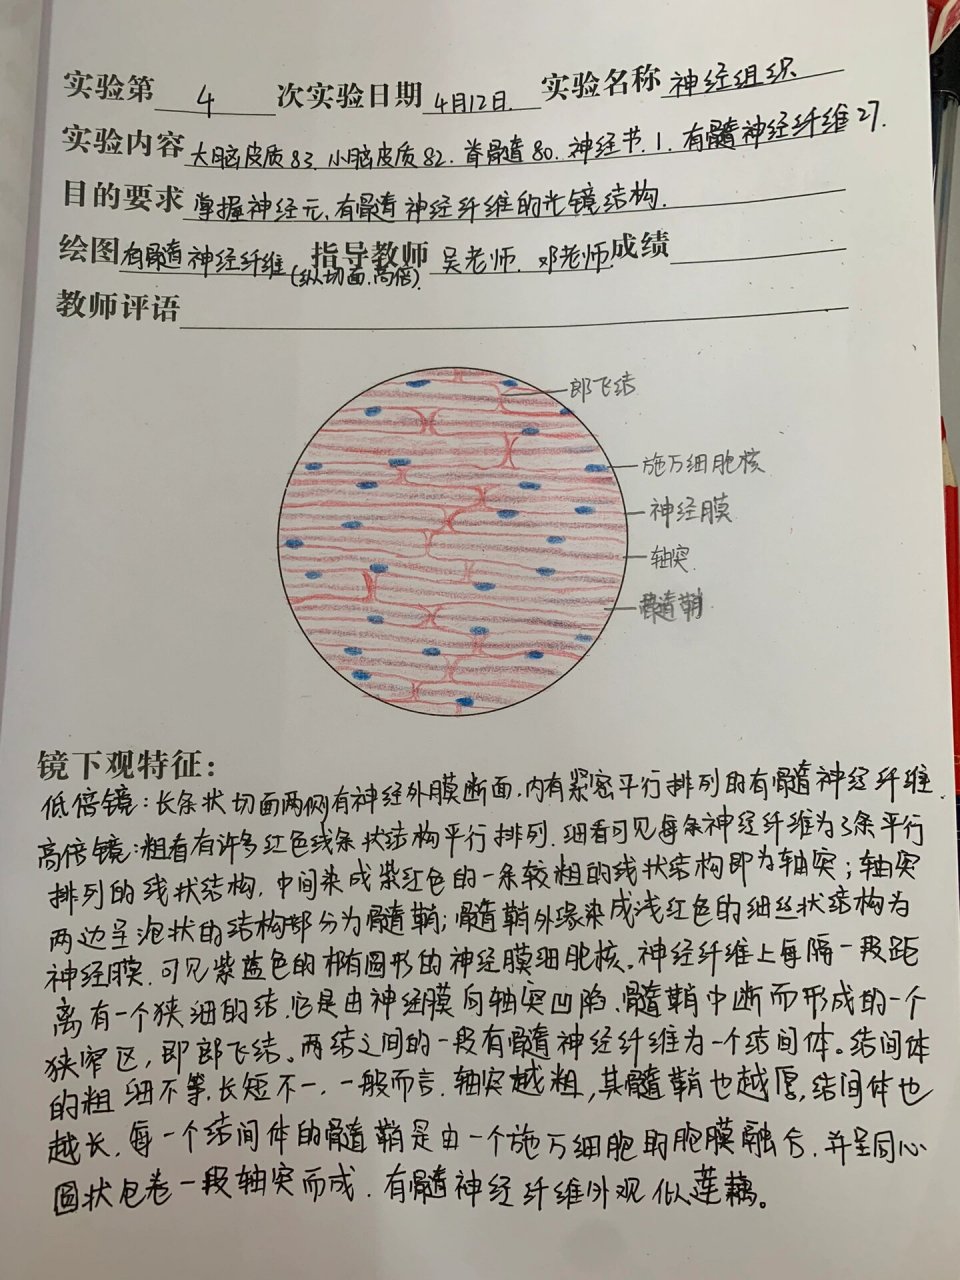 实验第 4 次实验日期 4月12日. 实验名称 神经组织
实验内容 大脑皮质83. 小脑皮质82. 脊髓80. 神经节.1. 有髓神经纤维27.
目的要求 掌握神经元.有髓神经纤维的光镜结构.
绘图 有髓神经纤维(纵切面.高倍). 指导教师 吴老师. 邓老师. 成绩
教师评语
郎飞结
施万细胞核
神经膜
轴突
髓鞘
镜下观特征：
低倍镜：长条状切面两侧有神经外膜断面.内有紧密平行排列的有髓神经纤维.
高倍镜：粗看有许多红色线条状结构平行排列.细看可见每条神经纤维为3条平行
排列的线状结构.中间染成紫红色的一条较粗的线状结构即为轴突；轴突
两边呈泡状的结构部分为髓鞘；髓鞘外缘染成浅红色的细丝状结构为
神经膜.可见紫蓝色的椭圆形的神经膜细胞核。神经纤维上每隔一段距
离有一个狭细的结.它是由神经膜向轴突凹陷.髓鞘中断而形成的一个
狭窄区，即郎飞结。两结之间的一段有髓神经纤维为一个结间体。结间体
的粗细不等.长短不一.一般而言.轴突越粗，其髓鞘也越厚，结间体也
越长.每一个结间体的髓鞘是由一个施万细胞的胞膜融合.并呈同心
圆状包卷一段轴突而成.有髓神经纤维外观似莲藕。